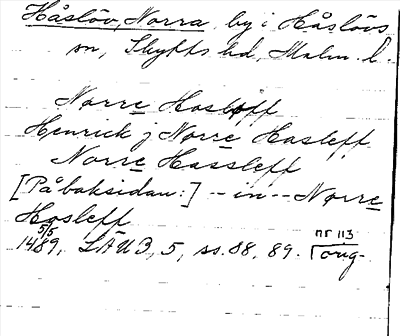 Håslöv, Norra, by i Håslövs
sn, Skytts hd, Malm. l.
Norre Hosløff
Henrick j Norre Hasleff
Norre Hassleff
[På baksidan:] -- in -- Norre
Hosleff
5/5
1489, LÄU 3, 5, ss. 88, 89. nr 113
orig.